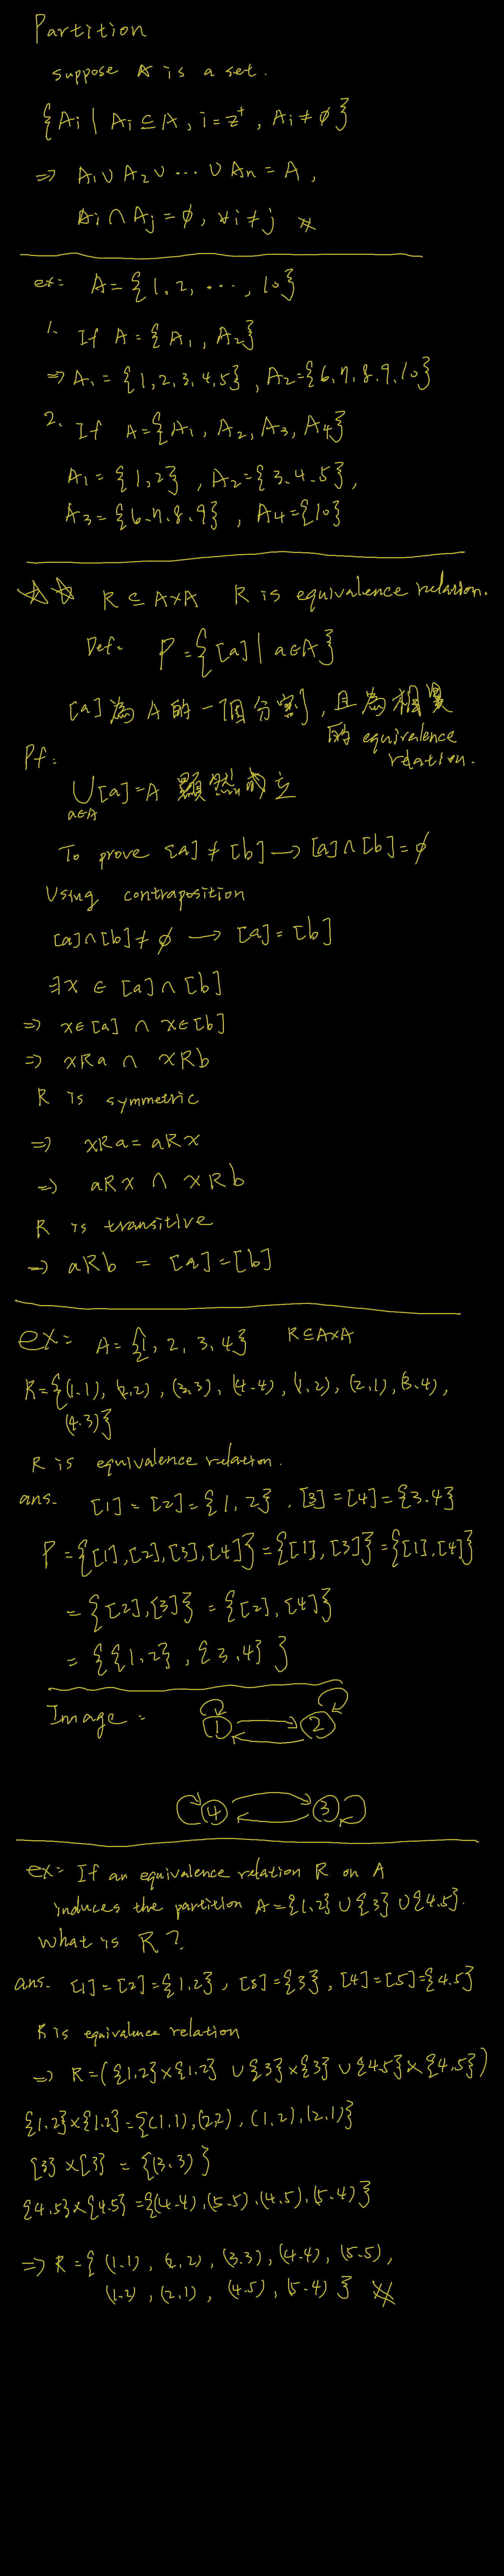 Partition
suppose A is a set.
{Ai | Ai ⊆ A, i = z⁺, Ai ≠ ∅}
⇒ A₁ ∪ A₂ ∪ ... ∪ An = A,
Ai ∩ Aj = ∅, ∀i ≠ j ※
ex: A = {1, 2, ..., 10}
1. If A = {A₁, A₂}
⇒ A₁ = {1, 2, 3, 4, 5}, A₂ = {6, 7, 8, 9, 10}
2. If A = {A₁, A₂, A₃, A₄}
A₁ = {1, 2}, A₂ = {3, 4, 5},
A₃ = {6, 7, 8, 9}, A₄ = {10}
☆☆ R ⊆ A×A R is equivalence relation.
Def: P = {[a] | a ∈ A}
[a] 為 A 的一個分割, 且為相異
的 equivalence
relation.
Pf:
∪[a] = A 顯然成立
a∈A
To prove [a] ≠ [b] → [a] ∩ [b] = ∅
Using contraposition
[a] ∩ [b] ≠ ∅ → [a] = [b]
∃x ∈ [a] ∩ [b]
⇒ x ∈ [a] ∩ x ∈ [b]
⇒ xRa ∩ xRb
R is symmetric
⇒ xRa = aRx
⇒ aRx ∩ xRb
R is transitive
⇒ aRb = [a] = [b]
ex: A = {1, 2, 3, 4} R ⊆ A×A
R = {(1,1), (2,2), (3,3), (4,4), (1,2), (2,1), (3,4),
(4,3)}
R is equivalence relation.
ans. [1] = [2] = {1, 2}, [3] = [4] = {3, 4}
P = {[1], [2], [3], [4]} = {[1], [3]} = {[1], [4]}
= {[2], [3]} = {[2], [4]}
= {{1, 2}, {3, 4}}
Image:
1 2
4 3
ex: If an equivalence relation R on A
induces the partition A = {1, 2} ∪ {3} ∪ {4, 5}.
What is R?
ans. [1] = [2] = {1, 2}, [3] = {3}, [4] = [5] = {4, 5}
R is equivalence relation
⇒ R = ({1, 2}×{1, 2} ∪ {3}×{3} ∪ {4, 5}×{4, 5})
{1, 2}×{1, 2} = {(1,1), (2,2), (1,2), (2,1)}
{3}×{3} = {(3,3)}
{4, 5}×{4, 5} = {(4,4), (5,5), (4,5), (5,4)}
⇒ R = {(1,1), (2,2), (3,3), (4,4), (5,5),
(1,2), (2,1), (4,5), (5,4)} ※